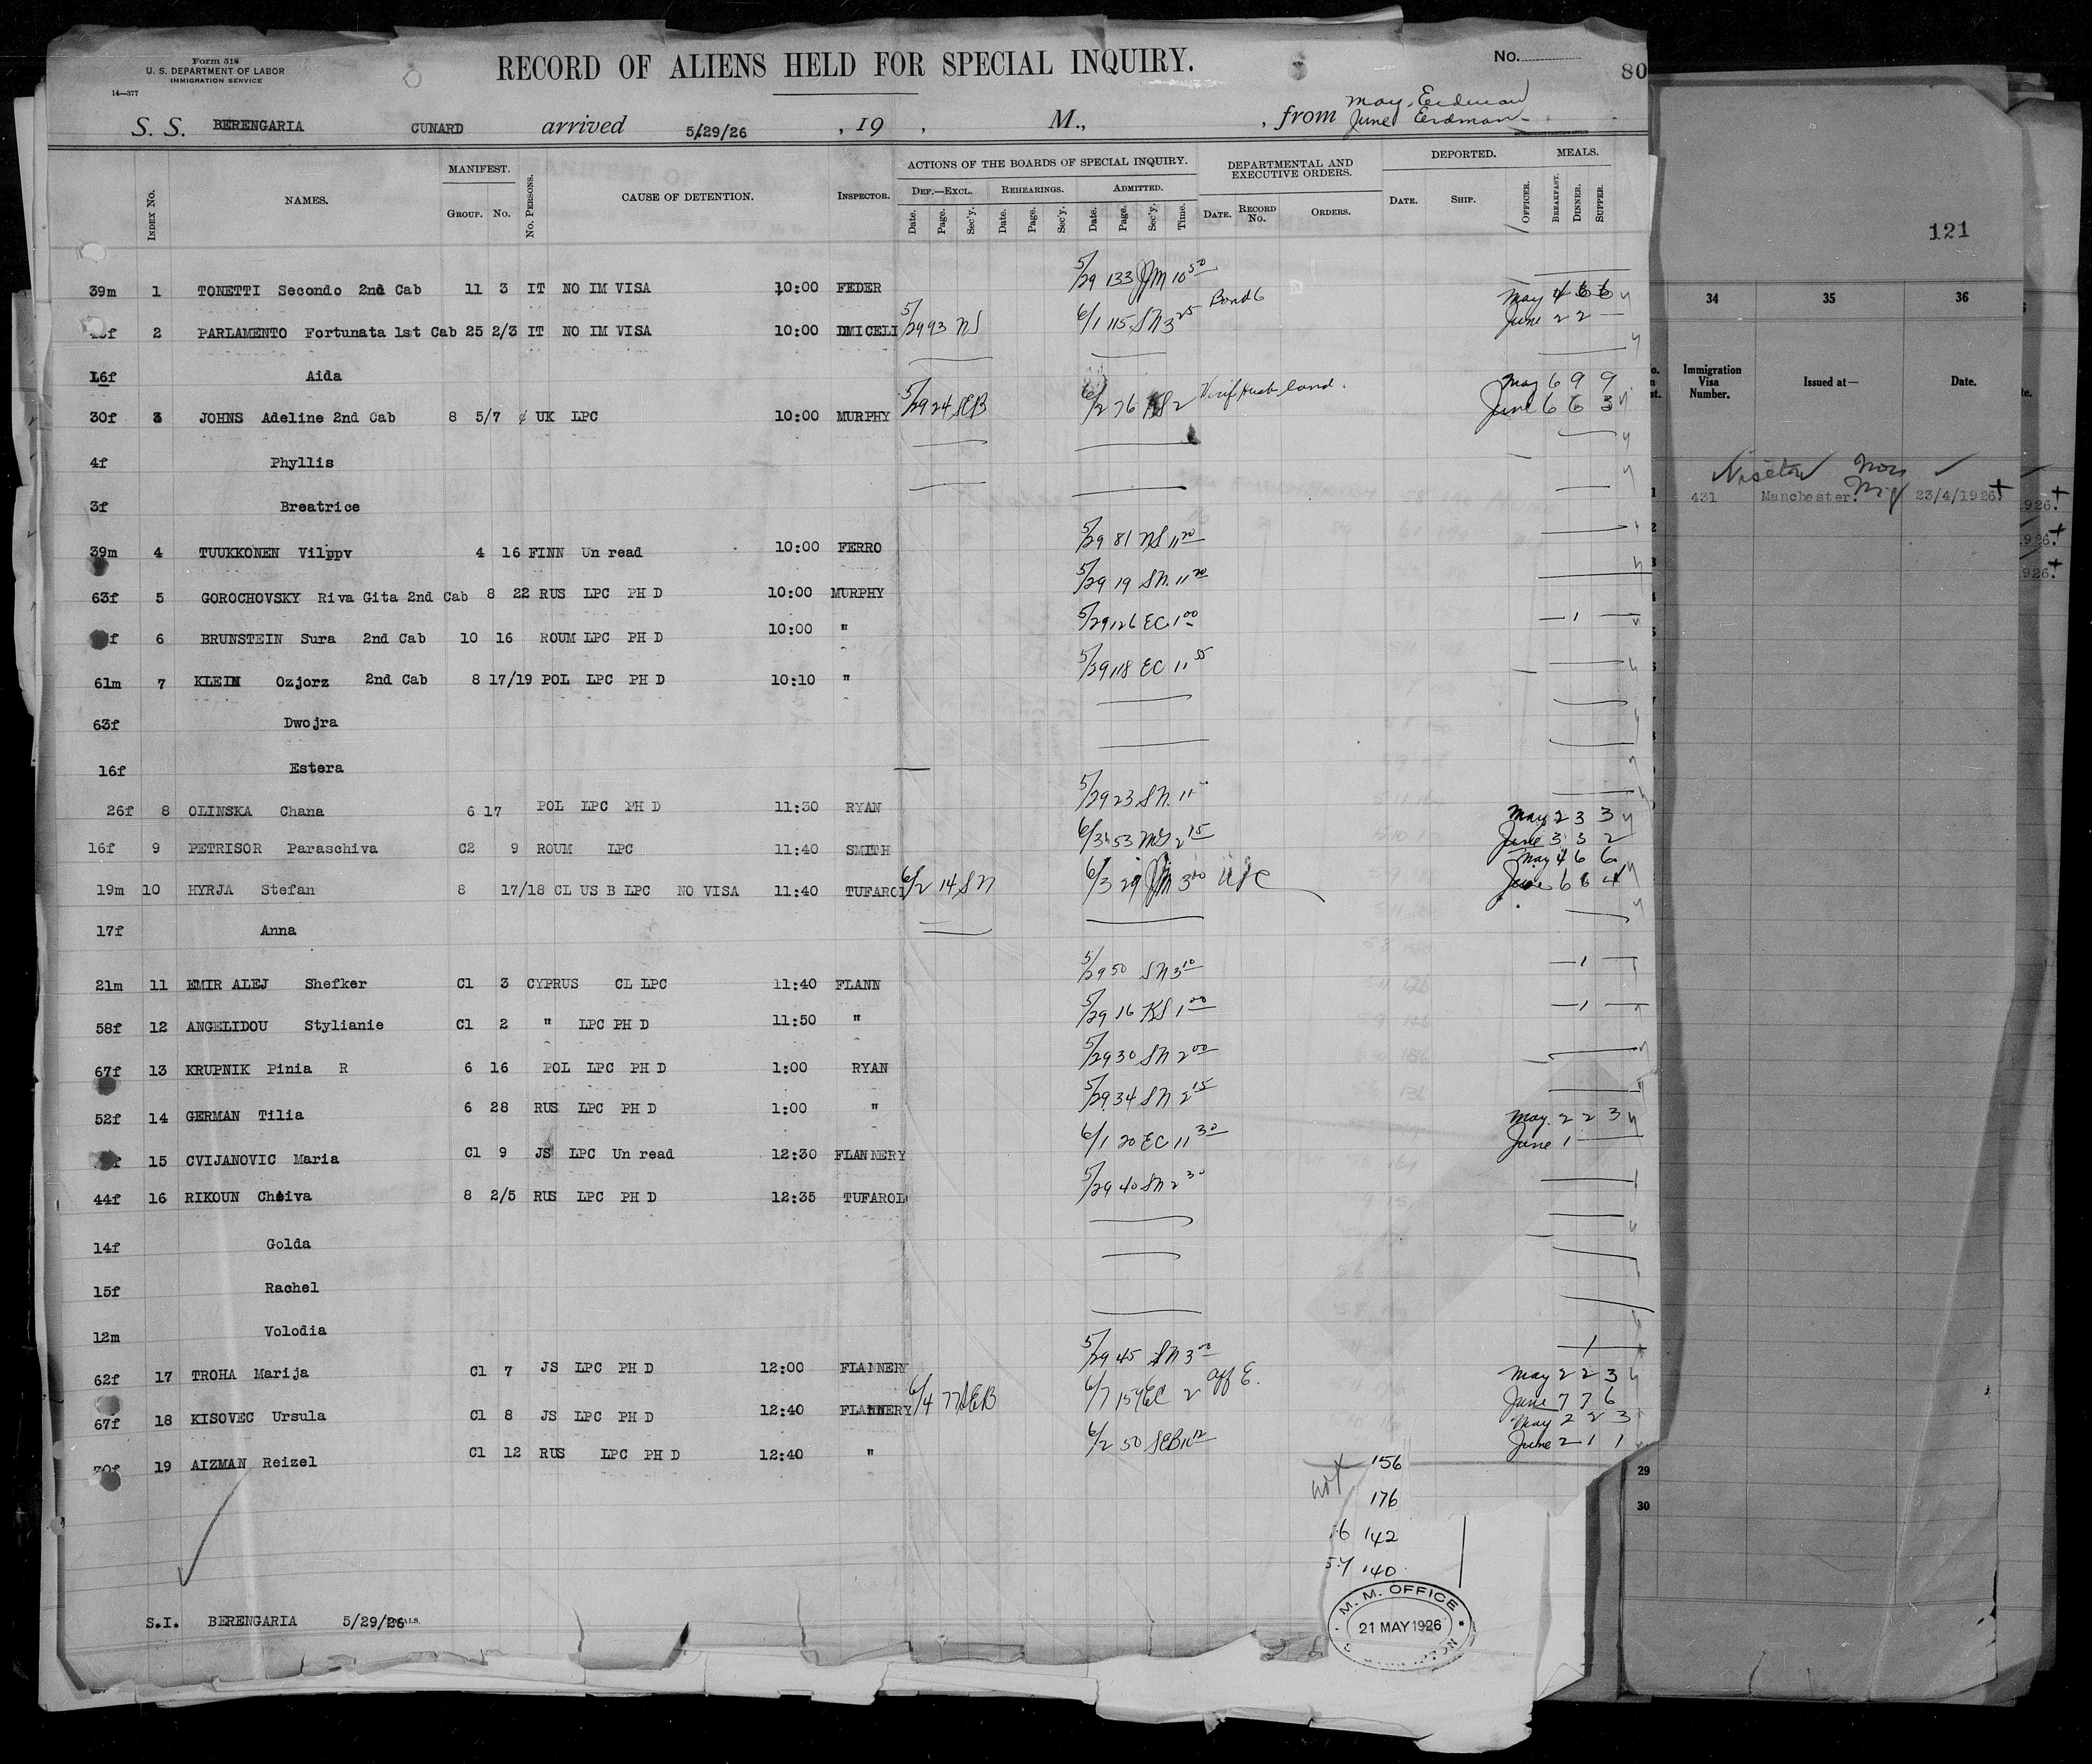 Form 518
U. S. DEPARTMENT OF LABOR
IMMIGRATION SERVICE
14—377
RECORD OF ALIENS HELD FOR SPECIAL INQUIRY.
No.
80
S. S. BERENGARIA CUNARD arrived 5/29/26 , 19 , M., , from May, Erdman
June Erdman
INDEX No. NAMES. MANIFEST. GROUP. No. No. PERSONS. CAUSE OF DETENTION. INSPECTOR. ACTIONS OF THE BOARDS OF SPECIAL INQUIRY. DEF.—EXCL. Date. Page. Sec'y. REHEARINGS. Date. Page. Sec'y. ADMITTED. Date. Page. Sec'y. Time. DEPARTMENTAL AND EXECUTIVE ORDERS. DATE. RECORD No. ORDERS. DEPORTED. DATE. SHIP. OFFICER. MEALS. BREAKFAST. DINNER. SUPPER.
39m 1 TONETTI Secondo 2nd Cab 11 3 IT NO IM VISA 10:00 FEDER 5/29 133 JM 10 50
2 PARLAMENTO Fortunata 1st Cab 25 2/3 IT NO IM VISA 10:00 DMICELI 5/29 93 NS 6/1 115 SN 3 25 Bond 6 May 4 6 6 June 2 2 —
16f Aida
30f 3 JOHNS Adeline 2nd Cab 8 5/7 UK LPC 10:00 MURPHY 5/29 24 SEB 6/2 76 KS 2 Verif Husb land. May 6 9 9 June 6 6 3
4f Phyllis
3f Breatrice
39m 4 TUUKKONEN Vilppv 4 16 FINN Un read 10:00 FERRO 5/29 81 NS 11 20
63f 5 GOROCHOVSKY Riva Gita 2nd Cab 8 22 RUS LPC PH D 10:00 MURPHY 5/29 19 SN. 11 20
6 BRUNSTEIN Sura 2nd Cab 10 16 ROUM LPC PH D 10:00 " 5/29 126 EC 1 00 — 1 —
61m 7 KLEIN Ozjorz 2nd Cab 8 17/19 POL LPC PH D 10:10 " 5/29 118 EC 11 55
63f Dwojra
16f Estera
26f 8 OLINSKA Chana 6 17 POL LPC PH D 11:30 RYAN 5/29 23 SN. 11
16f 9 PETRISOR Paraschiva C2 9 ROUM LPC 11:40 SMITH 6/3 53 MG 2 15 May 2 3 3 June 3 3 2
19m 10 HYRJA Stefan 8 17/18 CL US B LPC NO VISA 11:40 TUFAROL 6/2 14 SN 6/3 29 JM 3 00 May 4 6 6 June 6 6 4
17f Anna
21m 11 EMIR ALEJ Shefker C1 3 CYPRUS CL LPC 11:40 FLANN 5/29 50 SN 3 10 — 1 —
58f 12 ANGELIDOU Stylianie C1 2 " LPC PH D 11:50 " 5/29 16 KS 1 00 — 1 —
67f 13 KRUPNIK Pinia R 6 16 POL LPC PH D 1:00 RYAN 5/29 30 SN 2 00
52f 14 GERMAN Tilia 6 28 RUS LPC PH D 1:00 " 5/29 34 SN 2 15
15 CVIJANOVIC Maria C1 9 JS LPC Un read 12:30 FLANNERY 6/1 20 EC 11 30 May. 2 2 3 June 1
44f 16 RIKOUN Cheiva 8 2/5 RUS LPC PH D 12:35 TUFAROL 5/29 40 SN 2 30
14f Golda
15f Rachel
12m Volodia
62f 17 TROHA Marija C1 7 JS LPC PH D 12:00 FLANNERY 5/29 45 SN 3 00 1
67f 18 KISOVEC Ursula C1 8 JS LPC PH D 12:40 FLANNERY 6/4 77 SEB 6/7 157 EC 2 Aff E. May 2 2 3 June 7 7 6
70f 19 AIZMAN Reizel C1 12 RUS LPC PH D 12:40 " 6/2 50 SEB 10 12 May 2 2 3 June 2 1 1
not 156
176
6 142
57 140
M. M. OFFICE
21 MAY 1926
S.I. BERENGARIA 5/29/26
121
34 35 36
Immigration Visa Number. Issued at— Date.
431 Manchester. 23/4/1926.
926.
926.
926.
29
30